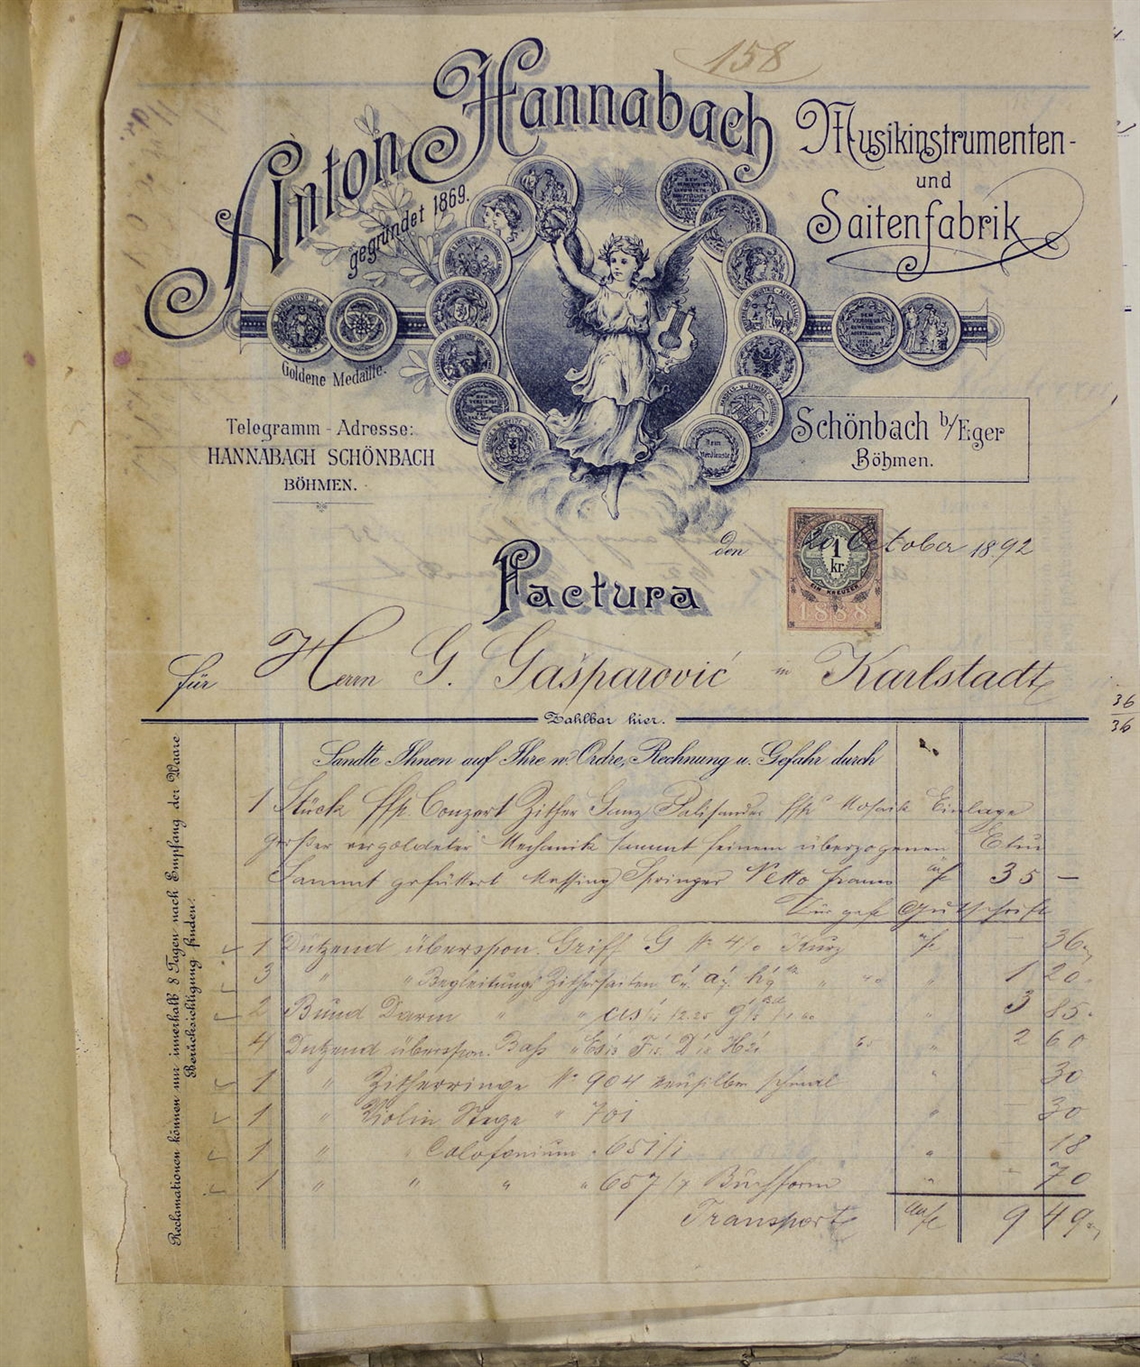 158
Anton Hannabach
gegründet 1869.
Musikinstrumenten-
und
Saitenfabrik
Goldene Medaille.
Telegramm-Adresse:
HANNABACH SCHÖNBACH
BÖHMEN.
Schönbach b/Eger
Böhmen.
Dem Verdienste
den October 1892
1
kr.
EIN KREUZER
1888
Factura
für Herrn G. Gašparović in Karlstadt
Zahlbar hier.
36
36
Reclamationen können nur innerhalb 8 Tagen nach Empfang der Waare
Berücksichtigung finden.
Sandte Ihnen auf Ihre w. Ordre, Rechnung u. Gefahr durch
1 Stück ffp. Conzert Zither Ganz Palisander Mosaik Einlage
großer vergoldeter Mechanik sammt feinem überzogenen Etui
Sammt gefüttert Messing Springer Netto franco 35 —
Gutschrift
1 Dutzend überspon. Griff G No 4/0 Kurz 36
3 " " Begleitungs Zithersaiten " 1 20
2 Bund Darm " " " 3 85
4 Dutzend überspon. Bass " " 2 60
1 " Zitherringe No 904 neusilber schmal " 30
1 " Violin Stege " 701 " 30
1 " " Colofonium " 651/1 " 18
1 " " " " 657/7 Buchform " 70
Transport 9 49